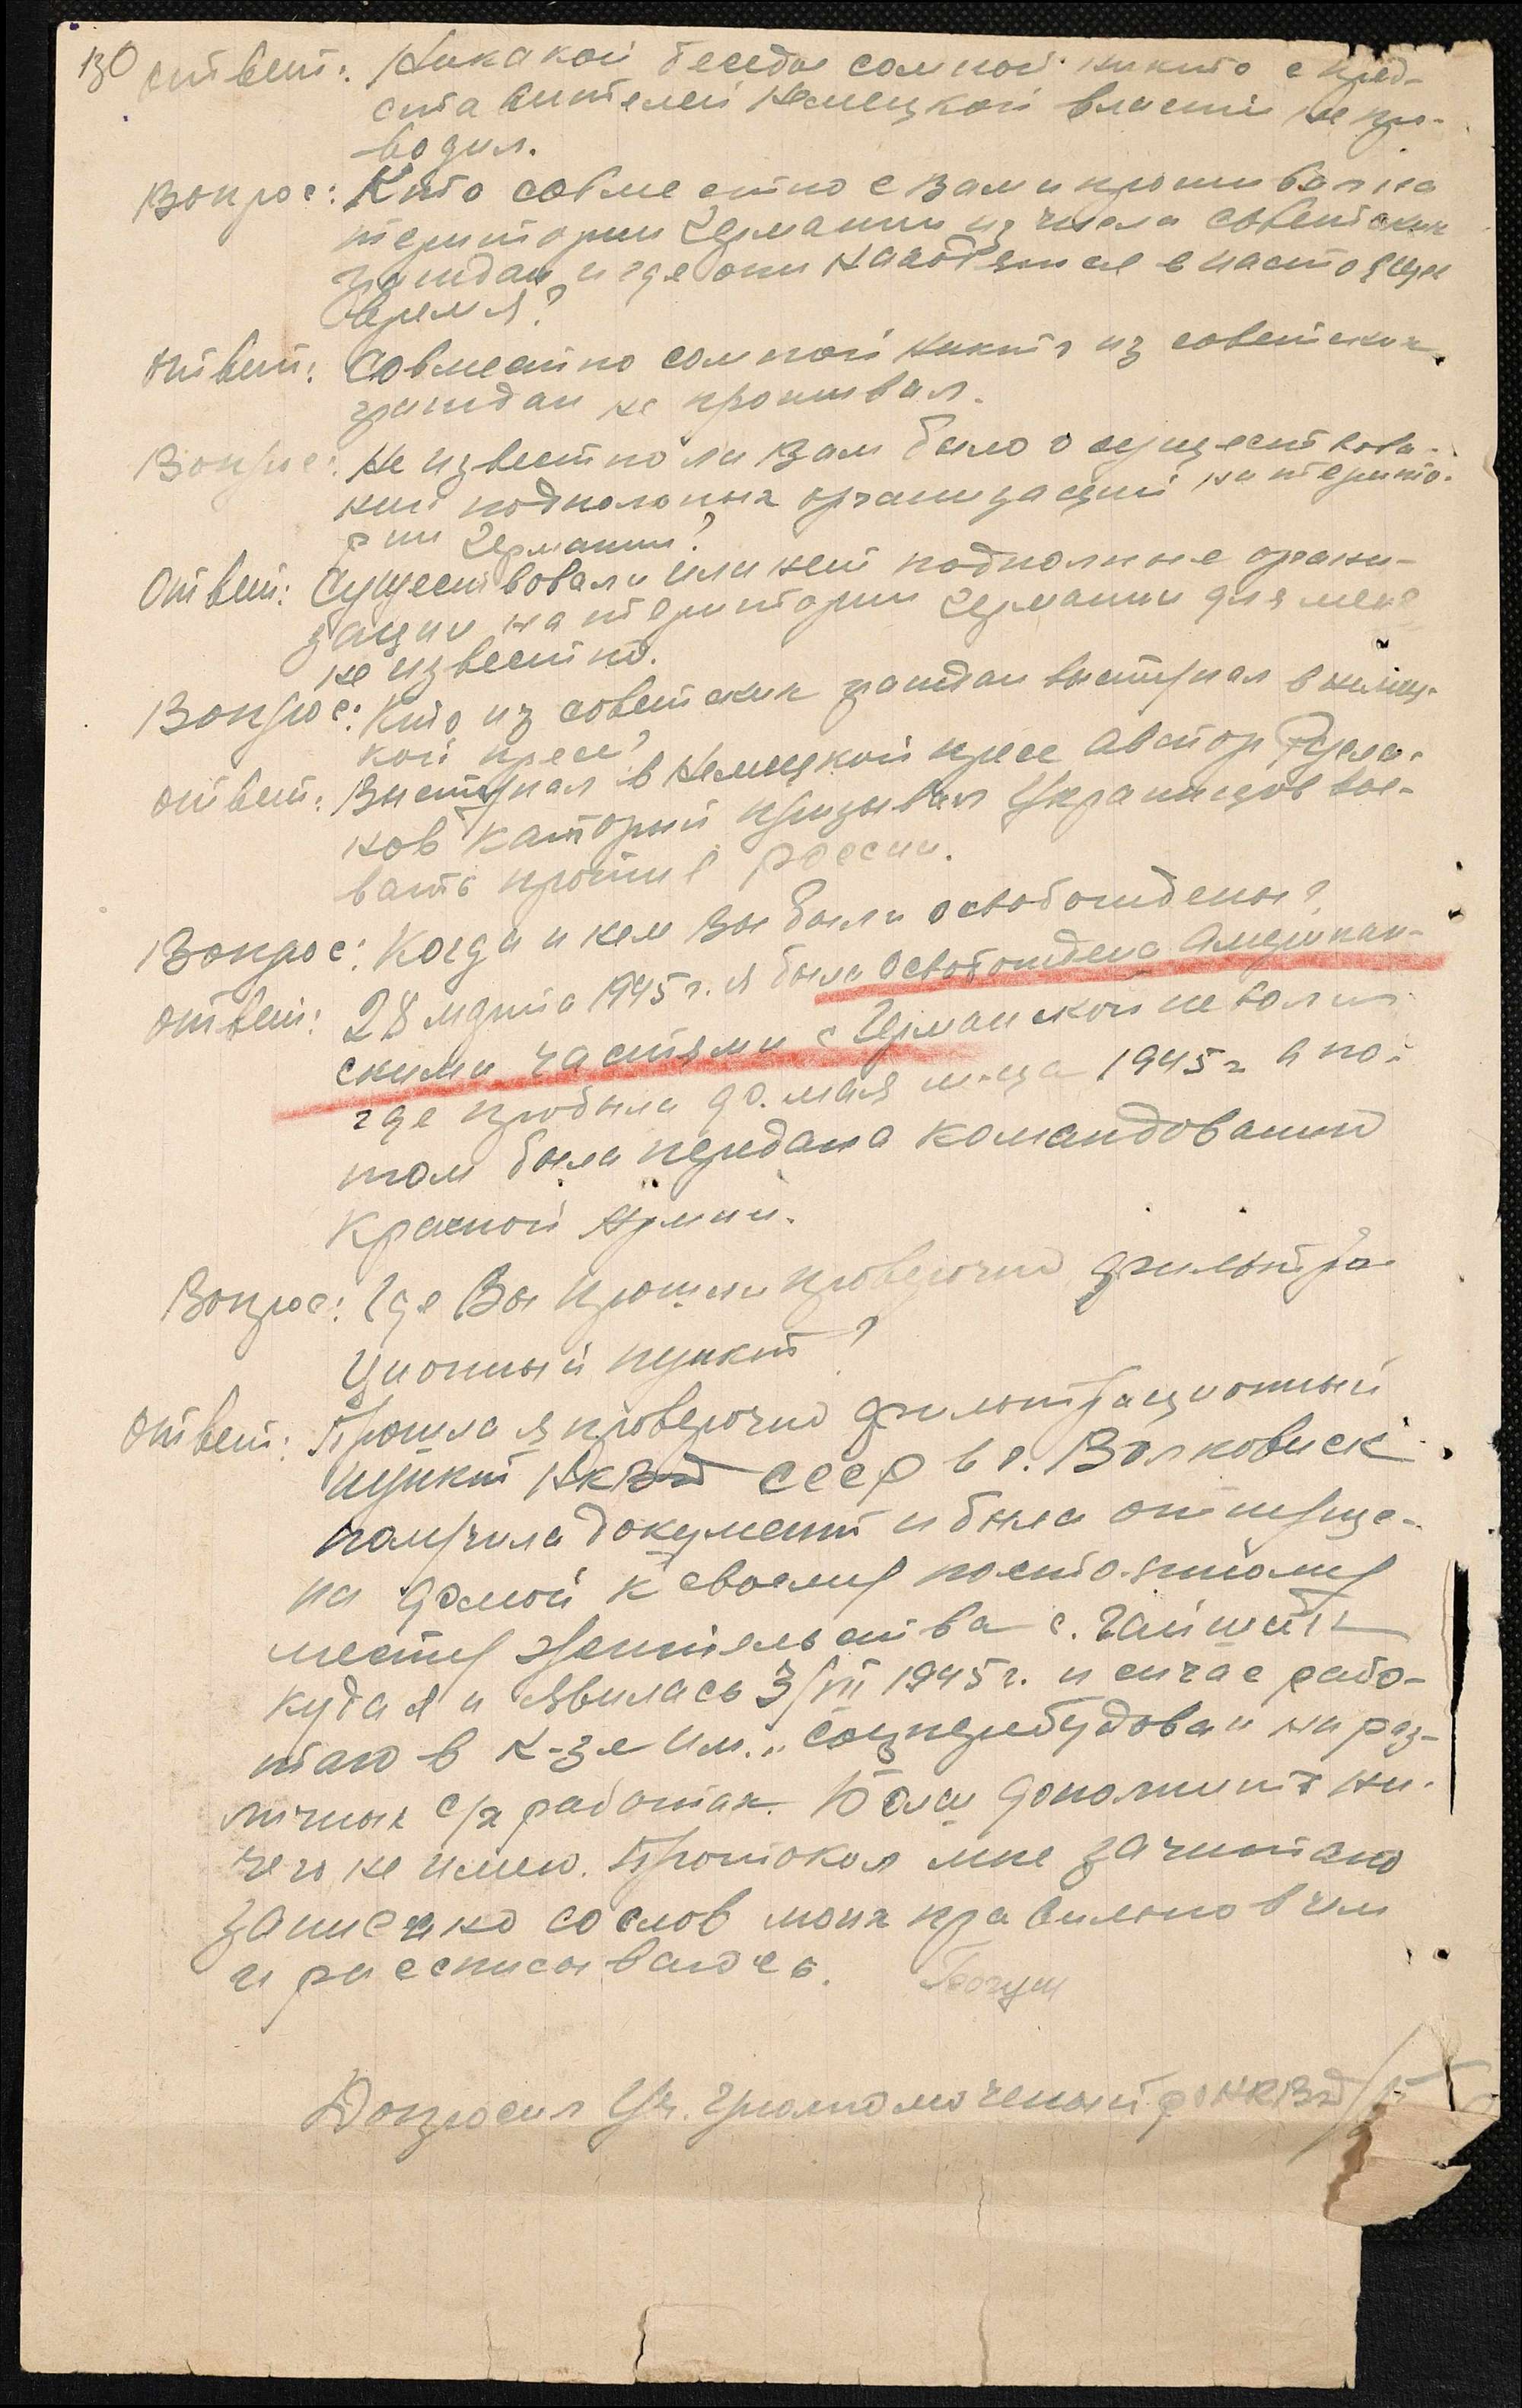 130
ответ: Никакой беседы сомной никто с пред-
ставителей Немецкой власти не про-
водил.
Вопрос: Кто совместно с Вами проживал на
територии Германии из числа советских
граждан и где они находятся в настоящее
время?
ответ: Совместно сомной никто из советских
граждан не проживал.
Вопрос: Не известно ли Вам было о существова-
нии подпольных организаций на терито-
рии Германии?
Ответ: Существовали или нет подполные органи-
зации на територии Германии для меня
не известно.
Вопрос: Кто из советских граждан выступал в немец-
кой пресе?
ответ: Выступал в Немецкой пресе автор
ков каторый призывал Украинцов вое-
вать против России.
Вопрос: Когда и кем Вы были освобождены?
ответ: 28 марта 1945 г. я была освобождена Американ-
скими частями с Германской неволи
где пробыла до мая м-ца 1945 г а по-
том была передана командованию
Красной Армии.
Вопрос: Где Вы прошли проверочно фильтра
ционный пункт?
ответ: Прошла я проверочно фильтрационный
пункт НКВД СССР в г. Волковиск
получила документ и была отпуще-
на домой к своему постоянному
месту жительства с.
куда я и явилась 3/VII 1945 г. и сичас рабо-
таю в к-зе им. „Соцперебудова" на раз-
личных с/х работах. Боле дополнить ни-
чего не имею. Протокол мне зачитано
записано со слов моих правильно в чем
и рассписываюсь.
Допросил Уч. Уполномоченый РО НКВД